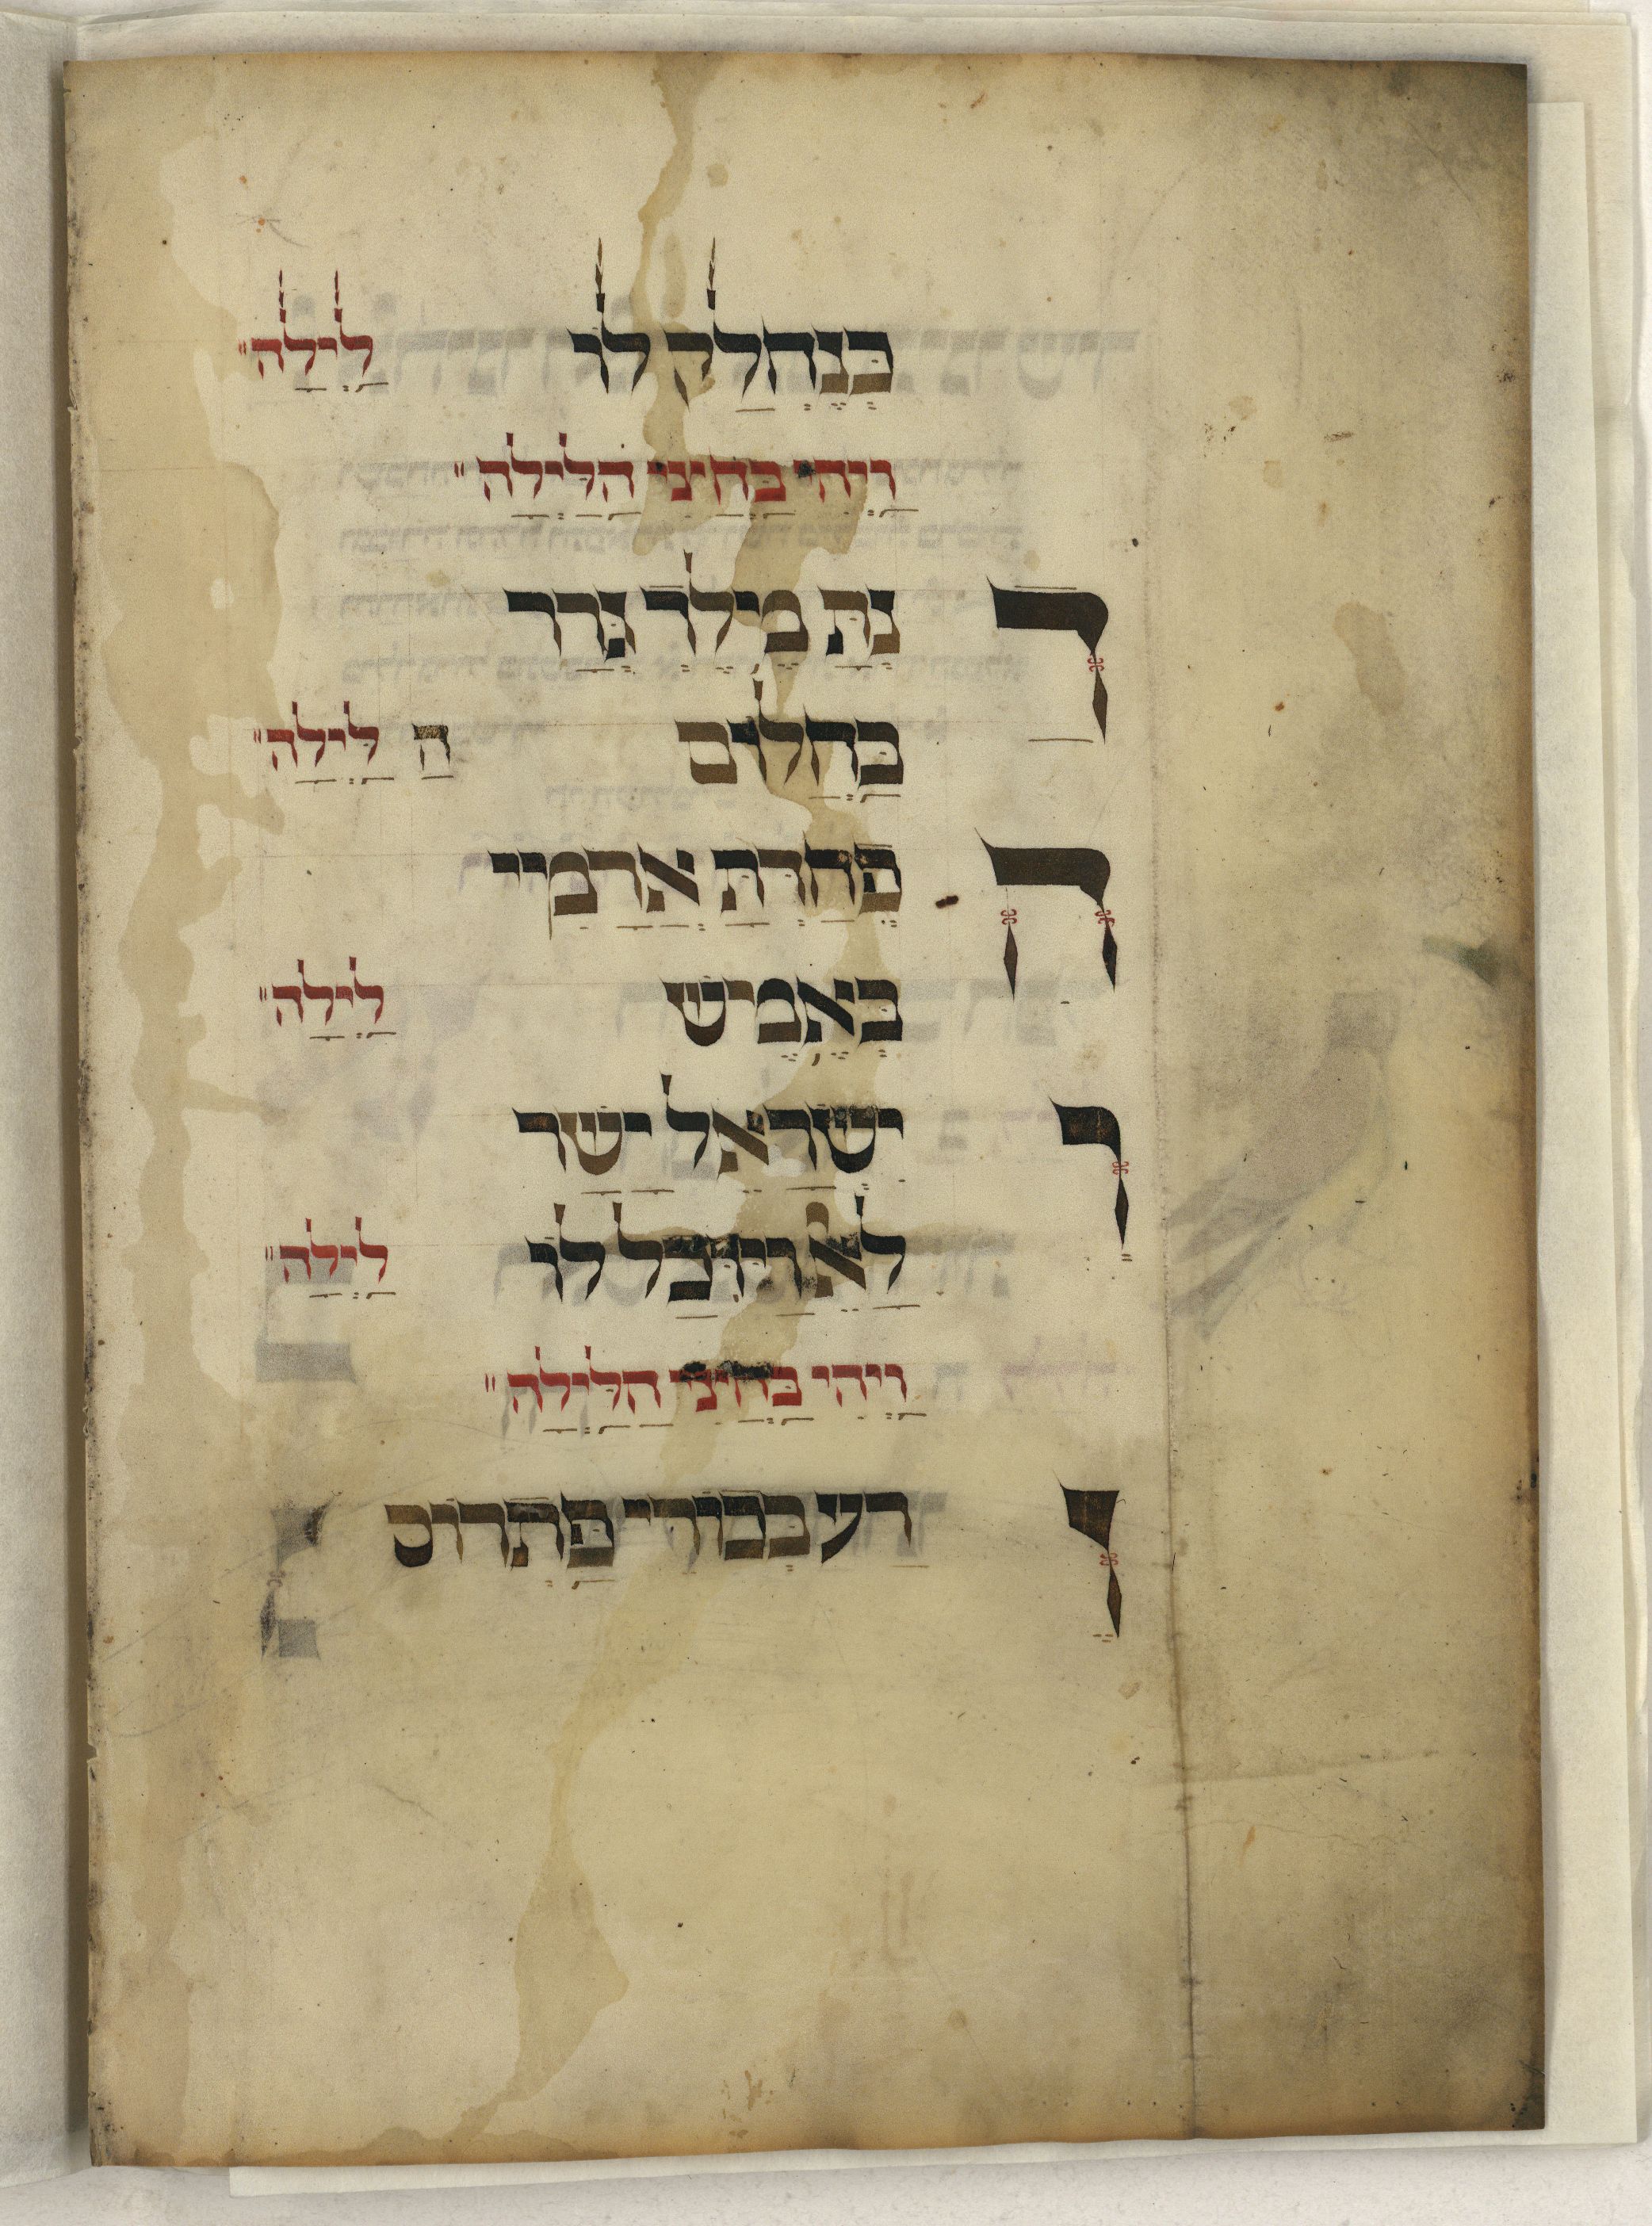 כְּנֶחְלַק לוֹ לַיְלָה״
וַיְהִי בַּחֲצִי הַלַּיְלָה״
דַּנְתָּ מֶילֶךְ גְּרָר
בַּחֲלוֹם הַ לַּיְלָה״
הִפְחַדְתָּ אֲרַמִיי
בְּאֶמֶישׁ לַיְלָה״
וְיִשְׂרָאֵל יָשַׂר
לָאֵל וַיּוּכַל לוֹ לַיְלָה״
וַיְהִי בַּחֲצִי הַלַּיְלָה״
זֶרַע בְּכוֹרֵי פַּתְרוֹס